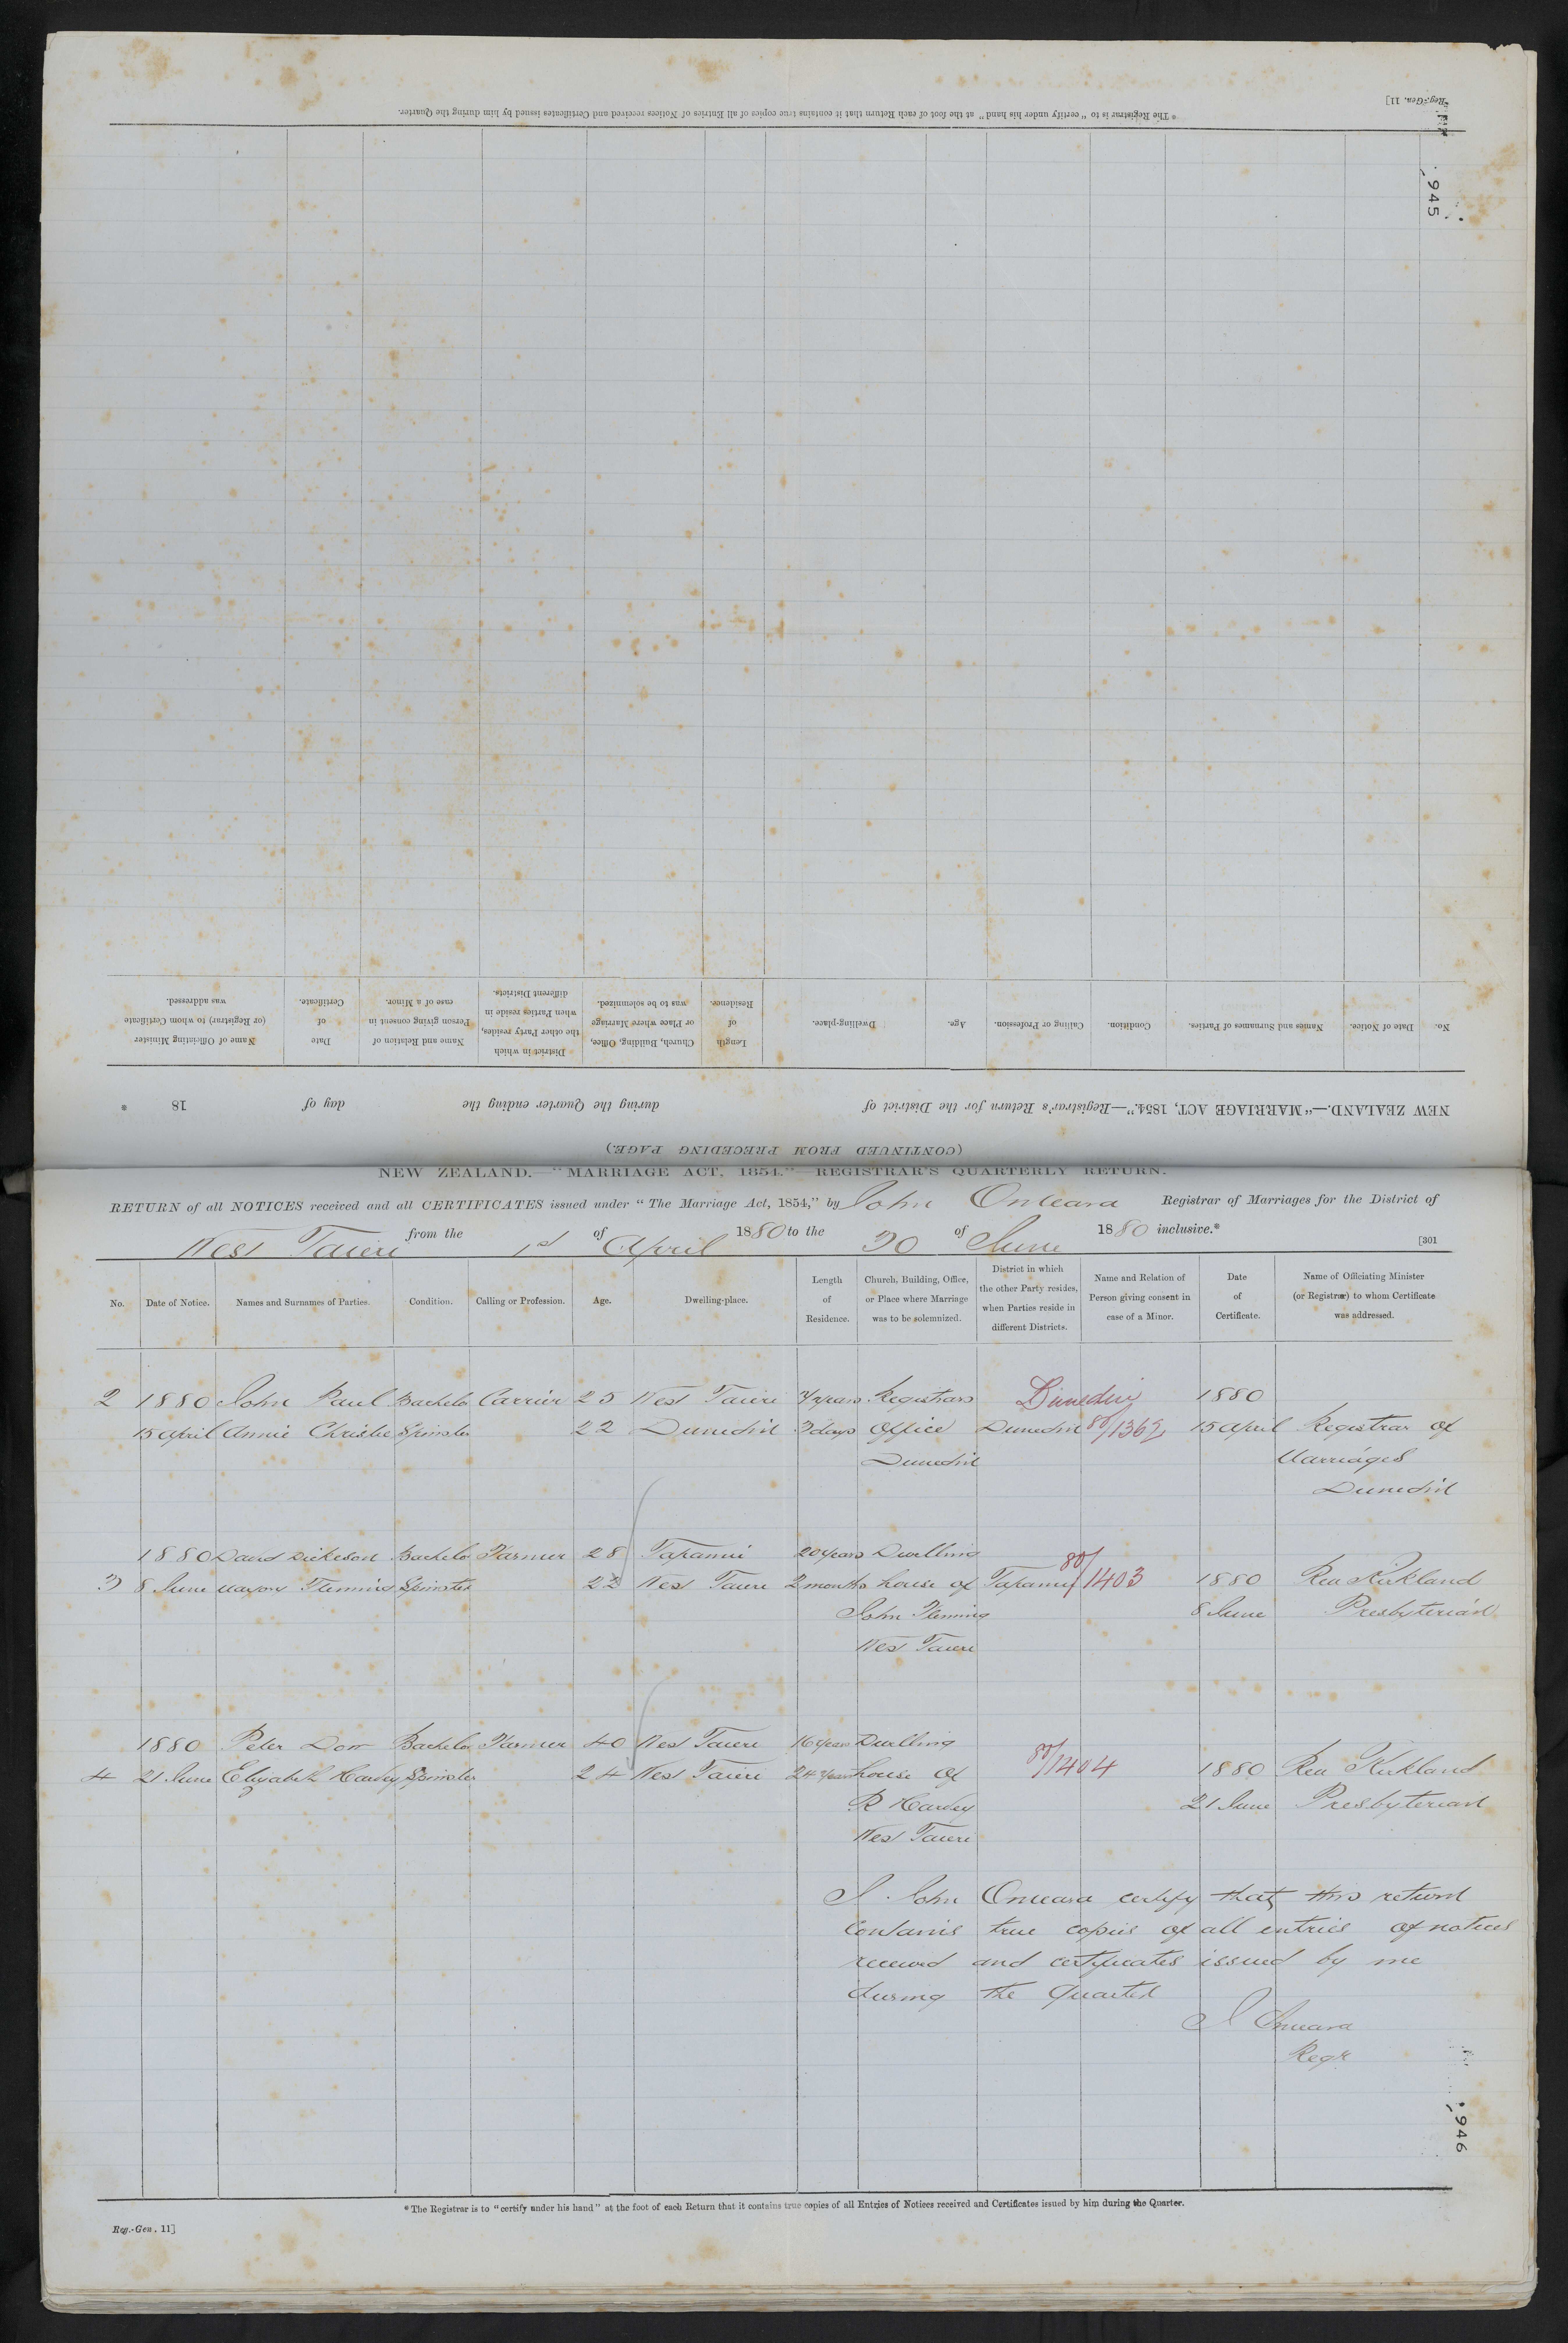 Reg.-Gen. 11]
* The Registrar is to "certify under his hand" at the foot of each Return that it contains true copies of all Entries of Notices received and Certificates issued by him during the Quarter.
945
(CONTINUED FROM PRECEDING PAGE.)
NEW ZEALAND.—"MARRIAGE ACT, 1854."—Registrar's Return for the District of during the Quarter ending the day of 18 *
No. Date of Notice. Names and Surnames of Parties. Condition. Calling or Profession. Age. Dwelling-place. Length of Residence. Church, Building, Office, or Place where Marriage was to be solemnized. District in which the other Party resides, when Parties reside in different Districts. Name and Relation of Person giving consent in case of a Minor. Date of Certificate. Name of Officiating Minister (or Registrar) to whom Certificate was addressed.
NEW ZEALAND.—"MARRIAGE ACT, 1854."—REGISTRAR'S QUARTERLY RETURN.
RETURN of all NOTICES received and all CERTIFICATES issued under "The Marriage Act, 1854," by John Omeara Registrar of Marriages for the District of
West Taieri from the 1st of April 1880 to the 30 of June 1880 inclusive.*
[301
No. Date of Notice. Names and Surnames of Parties. Condition. Calling or Profession. Age. Dwelling-place. Length of Residence. Church, Building, Office, or Place where Marriage was to be solemnized. District in which the other Party resides, when Parties reside in different Districts. Name and Relation of Person giving consent in case of a Minor. Date of Certificate. Name of Officiating Minister (or Registrar) to whom Certificate was addressed.
2 1880 John Paul Bachelo Carrier 25 West Taieri years Registrars Dunedin 1880
15 April Annie Christie Spinster 22 Dunedin 3 days Office Dunedin 80/1362 15 April Registrar of
Dunedin Marriages
Dunedin
1880 David Dickeson Bachelo Farmer 28 Tapanui 20 years Dwelling
3 8 June Marjory Fleming Spinster 22 West Taieri 2 months house of Tapanui 80/1403 1880 Rev Kirkland
John Fleming 8 June Presbyterian
West Taieri
1880 Peter Dow Bachelo Farmer 40 West Taieri 16 years Dwelling
4 21 June Elizabeth Harvey Spinster 24 West Taieri 24 years house of 80/1404 1880 Rev Kirkland
R Harvey 21 June Presbyterian
West Taieri
I John Omeara certify that this return
contains true copies of all entries of notices
received and certificates issued by me
during the Quarter
J Omeara
Regr
946
* The Registrar is to "certify under his hand" at the foot of each Return that it contains true copies of all Entries of Notices received and Certificates issued by him during the Quarter.
Reg.-Gen. 11]